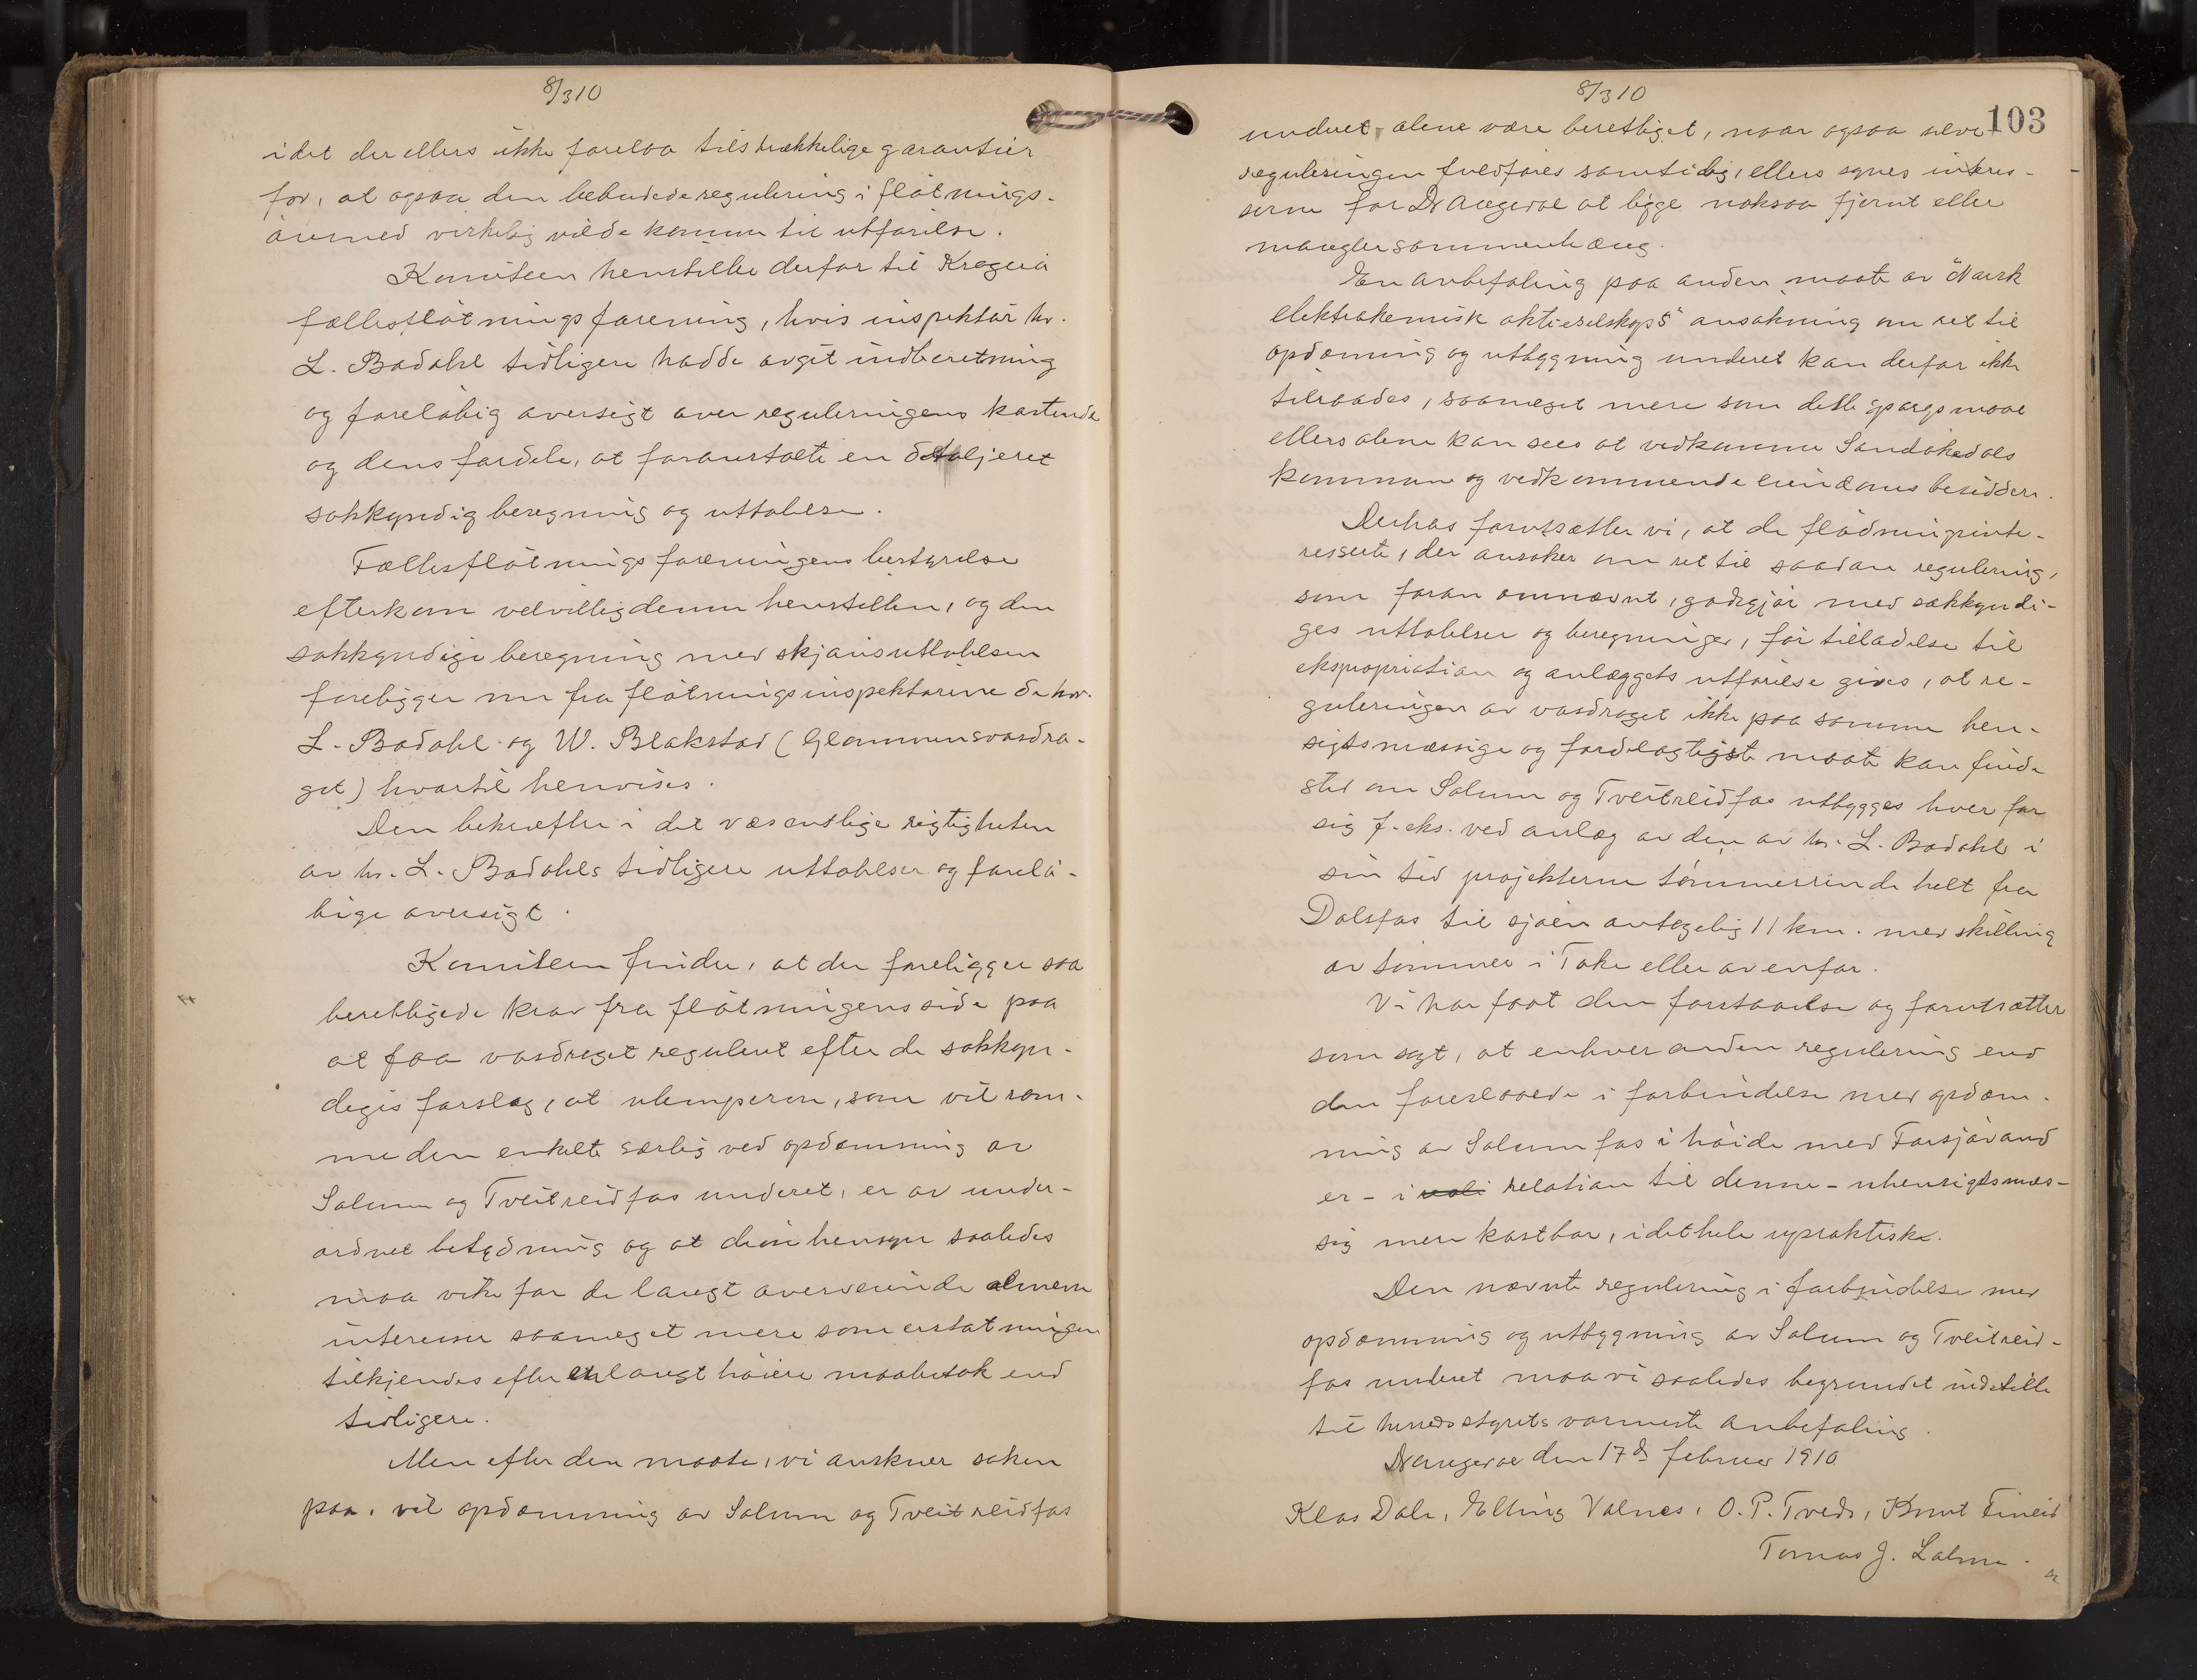 8/3 10
idet der ellers ikke forelaa tilstrækkelige garantier
for, at ogsaa den bebudede regulering i flötnings-
öiemed virkelig vilde komme til utförelse.
Komiteen henstille derfor til Kragerö
fællesflötningsforening, hvis inspektör hr.
L. Bødahl tidligere hadde avgit indberetning
og forelöbig oversigt over reguleringens kostende
og dens fordele, at foranstalte en detaljeret
sakkyndig beregning og uttalelse.
Fællesflötningsforeningens bestyrelse
efterkom velvillig denne henstillen, og den
sakkyndige beregning med skjönsuttalelsen
foreligger nu fra flötningsinspektörine de hrr.
L. Bødahl og W. Blakstad (Glommensvasdra-
get) hvortil henvises.
Den bekræfter i det væsentlige rigtigheten
av hr. L. Bødahls tidligere uttalelser og forelö-
bige oversigt.
Komiteen finder, at der foreligger saa
berettigede krav fra flötningens side paa
at faa vasdraget regulert efter de sakkyn-
diges forslag, at ulemperne, som vil ram-
me den enkelte særlig ved opdæmning av
Solum og Tveitreidfos underet, er av under-
ordnet betydning og at disse hensyn saaledes
maa vike for de langt overveiende almene
interesser saameget mere som erstatningen
tilkjendes efter en langt höiere maalestok end
tidligere.
Men efter den maate, vi anskuer saken
paa, vil opdæmning av Solum og Tveitreidfos
8/3 10
103
underet, alene være berettiget, naar ogsaa selve
reguleringen fuldföres samtidig, ellers synes interes-
serne for Drangedal at ligge noksaa fjernt eller
mangler sammenhæng.
En anbefaling paa anden maate av "Norsk
elektrokemisk aktieselskaps" ansökning om ret til
opdæmning og utbygning underet kan derfor ikke
tilraades, saameget mere som dette spörgsmaal
ellers alene kan sees at vedkomme Sandökedals
kommune og vedkommende eiendoms besiddere.
Derhos forutsætter vi, at de flödningsinte-
resserte, der ansöker om ret til saadan regulering,
som foran omnævnt, godtgjör med sakkyndi-
ges uttalelser og beregninger, för tilladelse til
ekspropriation og anlæggets utförelse gives, at re-
guleringen av vasdraget ikke paa samme hen-
sigtsmæssige og fordelagtigste maate kan finde
sted om Solum og Tveitreidfos utbygges hver for
sig f. eks. ved anlæg av den av hr. L. Bødahl i
sin tid projekterne tömmerrende helt fra
Dalsfos til sjöen antagelig 11 km. med skilling
av tömmer i Toke eller ovenfor.
Vi har faat den forstaaelse og forutsætter
som sagt, at enhver anden regulering end
den foreslaaede i forbindelse med opdæm-
ning av Solumfos i höide med Farsjövand
er - i relation til denne - uhensigtsmæs-
sig mere kostbar, i det hele upraktiske.
Den nævnte regulering i forbindelse med
opdæmning og utbygning av Solum og Tveitreid-
fos underet maa vi saaledes begrundet indstille
til herredsstyrets varmeste anbefaling.
Drangedal den 17de februar 1910
Klas Dale, Elling Valnes, O. P. Tvedt, Knut Fineid
Tomas J. Lalum.